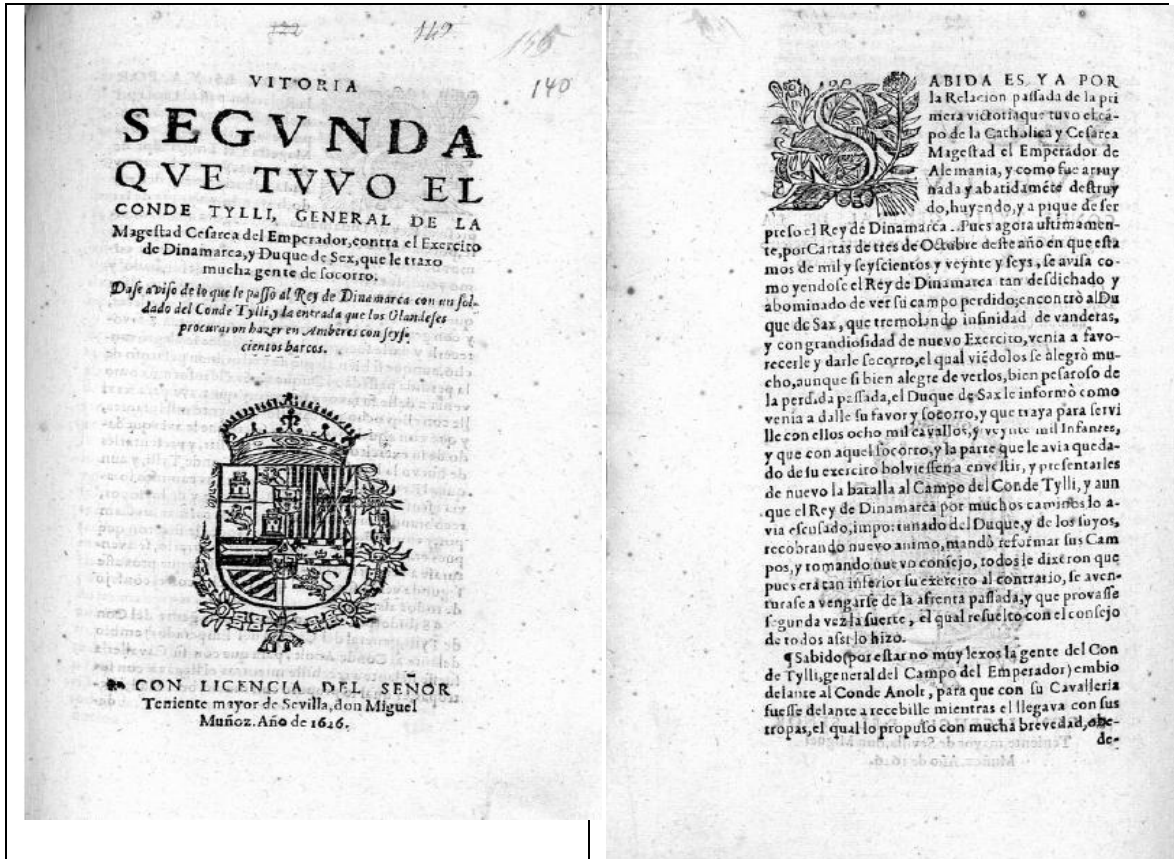 122 149 155
140
VITORIA
SEGVNDA
QVE TVVO EL
CONDE TYLLI, GENERAL DE LA
Magestad Cesarea del Emperador, contra el Exercito
de Dinamarca, y Duque de Sex, que le traxo
mucha gente de socorro.
Dase aviso de lo que le passò al Rey de Dinamarca con un sol-
dado del Conde Tylli, y la entrada que los Olandeses
procuraron hazer en Amberes con seys-
cientos barcos.
CON LICENCIA DEL SEÑOR
Teniente mayor de Sevilla, don Miguel
Muñoz. Año de 1626.
SABIDA ES YA POR
la Relacion passada de la pri
mera victoria que tuvo el cá-
po de la Catholica y Cesarea
Magestad el Emperador de
Alemania, y como fue arruy
nada y abatidaméte destruy
do, huyendo, y a pique de ser
preso el Rey de Dinamarca. Pues agora ultimamen-
te, por Cartas de tres de Octubre deste año en que esta
mos de mil y seyscientos y veynte y seys, se avisa co-
mo yendose el Rey de Dinamarca tan desdichado y
abominado de ver su campo perdido; encontrò al Du
que de Sax, que tremolando infinidad de vanderas,
y con grandiosidad de nuevo Exercito, venia a favo-
recerle y darle socorro, el qual viédolos se alegrò mu-
cho, aunque si bien alegre de verlos, bien pesaroso de
la perdida passada, el Duque de Sax le informò como
venia a dalle su favor y socorro, y que traya para servi
lle con ellos ocho mil cavallos, y veynte mil Infantes,
y que con aquel socorro, y la parte que le avia queda-
do de su exercito bolviessen a envestir, y presentarles
de nuevo la batalla al Campo del Conde Tylli, y aun
que el Rey de Dinamarca por muchos caminos lo a-
via escusado, importunado del Duque, y de los suyos,
recobrando nuevo animo, mandò reformar sus Cam
pos, y tomando nuevo consejo, todos le dixeron que
pues era tan inferior su exercito al contrario, se aven-
turase a vengarse de la afrenta passada, y que provasse
segunda vez la suerte, el qual resuelto con el consejo
de todos assi lo hizo.
¶ Sabido (por estar no muy lexos la gente del Con
de Tylli, general del Campo del Emperador) embio
delante al Conde Anolt, para que con su Cavalleria
fuesse delante a recebille mientras el llegava con sus
tropas, el qual lo propuso con mucha brevedad, obe-
de-